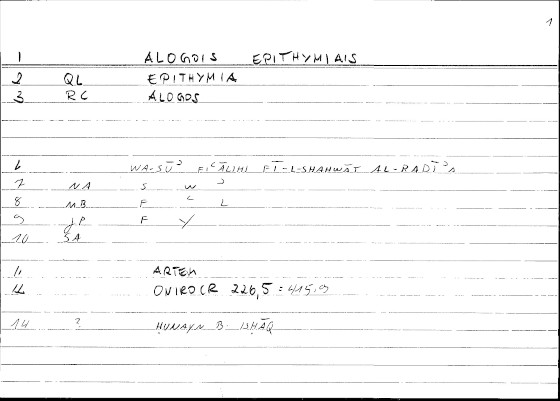 1
1 ALOGOIS EPITHYMIAIS
2 QL EPITHYMIA
3 RC ALOGOS
6 WA-SŪʾ FIʿĀLIHI FĪ-L-SHAHWĀT AL-RADĪʾA
7 NA S W ʾ
8 MB F ʿ L
9 JP F Y
10 SA
11 ARTEM
12 ONIROCR 226,5 = 415,9
14 ? ḤUNAYN B. ISḤĀQ